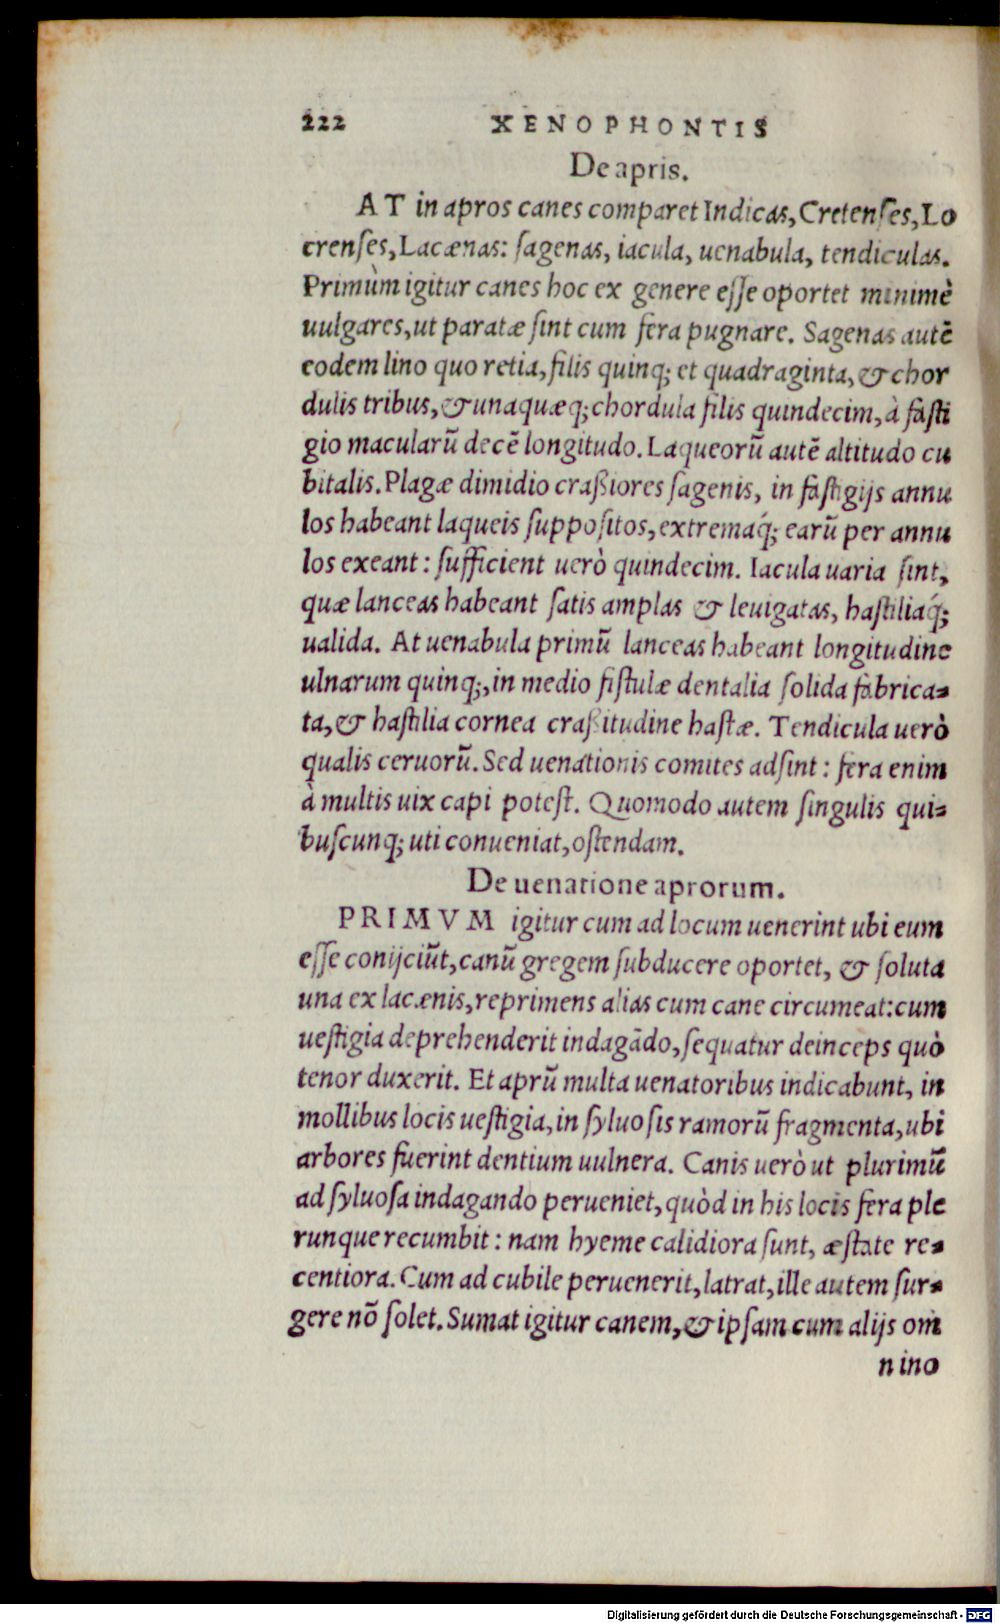 222 XENOPHONTIS
De apris.
AT in apros canes comparet Indicas, Cretenſes, Lo
crenſes, Lacænas: ſagenas, iacula, uenabula, tendiculas.
Primùm igitur canes hoc ex genere eſſe oportet minimè
uulgares, ut paratæ ſint cum fera pugnare. Sagenas autē
eodem lino quo retia, filis quinq; et quadraginta, & chor
dulis tribus, & unaquæq; chordula filis quindecim, à faſti
gio macularū decē longitudo. Laqueorū autē altitudo cu
bitalis. Plagæ dimidio craßiores ſagenis, in faſtigijs annu
los habeant laqueis ſuppoſitos, extremaq́; earū per annu
los exeant: ſufficient uerò quindecim. Iacula uaria ſint,
quæ lanceas habeant ſatis amplas & leuigatas, haſtiliaq́;
ualida. At uenabula primū lanceas habeant longitudine
ulnarum quinq;, in medio fiſtulæ dentalia ſolida fabrica=
ta, & haſtilia cornea craßitudine haſtæ. Tendicula uerò
qualis ceruorū. Sed uenationis comites adſint: fera enim
à multis uix capi poteſt. Quomodo autem ſingulis qui=
buſcunq; uti conueniat, oſtendam.
De uenatione aprorum.
PRIMVM igitur cum ad locum uenerint ubi eum
eſſe conijciūt, canū gregem ſubducere oportet, & ſoluta
una ex lacænis, reprimens alias cum cane circumeat: cum
ueſtigia deprehenderit indagādo, ſequatur deinceps quò
tenor duxerit. Et aprū multa uenatoribus indicabunt, in
mollibus locis ueſtigia, in ſyluoſis ramorū fragmenta, ubi
arbores fuerint dentium uulnera. Canis uerò ut plurimū
ad ſyluoſa indagando perueniet, quòd in his locis fera ple
runque recumbit: nam hyeme calidiora ſunt, æſtate re=
centiora. Cum ad cubile peruenerit, latrat, ille autem ſur=
gere nō ſolet. Sumat igitur canem, & ipſam cum alijs om
nino
Digitalisierung gefördert durch die Deutsche Forschungsgemeinschaft - DFG